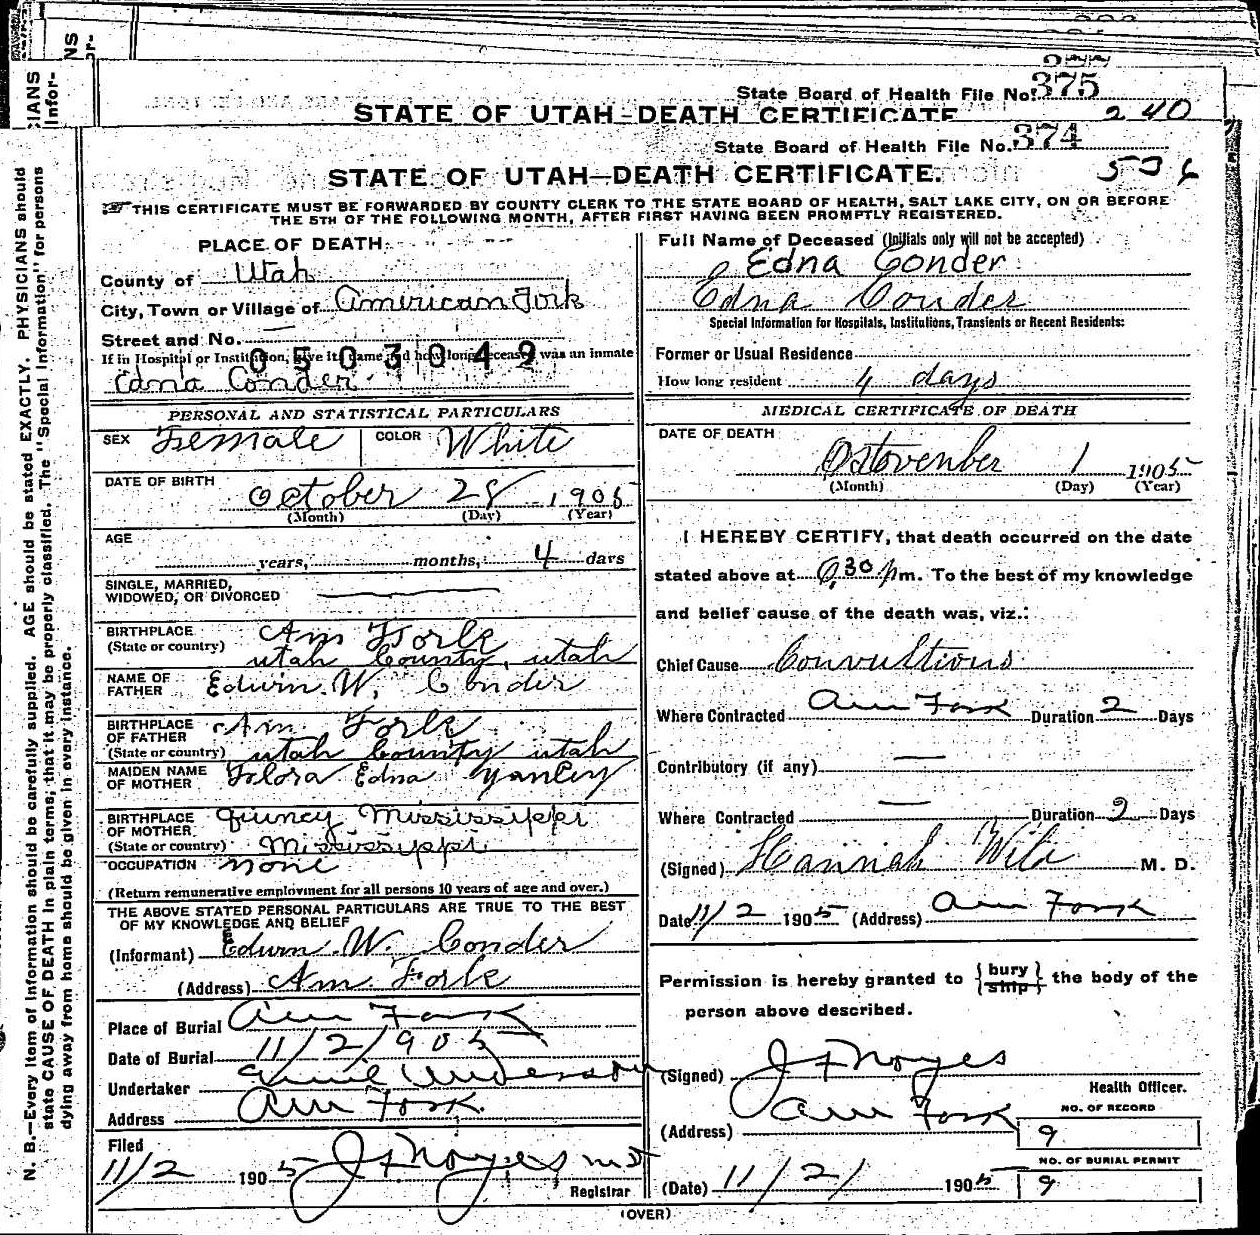 State Board of Health File No. 375
STATE OF UTAH-DEATH CERTIFICATE
240
State Board of Health File No. 374
STATE OF UTAH—DEATH CERTIFICATE.
536
THIS CERTIFICATE MUST BE FORWARDED BY COUNTY CLERK TO THE STATE BOARD OF HEALTH, SALT LAKE CITY, ON OR BEFORE
THE 5TH OF THE FOLLOWING MONTH, AFTER FIRST HAVING BEEN PROMPTLY REGISTERED.
N. B.—Every item of information should be carefully supplied. AGE should be stated EXACTLY. PHYSICIANS should
state CAUSE OF DEATH in plain terms, that it may be properly classified. The "Special Information" for persons
dying away from home should be given in every instance.
PLACE OF DEATH:
County of Utah
City, Town or Village of American Fork
Street and No. —
If in Hospital or Institution, give its name and how long deceased was an inmate
0503042
Edna Conder
PERSONAL AND STATISTICAL PARTICULARS
SEX Female COLOR White
DATE OF BIRTH October 28, 1905
(Month) (Day) (Year)
AGE
years, months, 4 days
SINGLE, MARRIED,
WIDOWED, OR DIVORCED
BIRTHPLACE Am Fork
(State or country) utah County, utah
NAME OF
FATHER Edwin W. Conder
BIRTHPLACE
OF FATHER Am. Fork
(State or country) utah County utah
MAIDEN NAME
OF MOTHER Flora Edna Yancey
BIRTHPLACE
OF MOTHER Quincy Mississippi
(State or country) Mississippi
OCCUPATION none
(Return remunerative employment for all persons 10 years of age and over.)
THE ABOVE STATED PERSONAL PARTICULARS ARE TRUE TO THE BEST
OF MY KNOWLEDGE AND BELIEF
(Informant) Edwin W. Conder
(Address) Am. Fork
Place of Burial Am Fork
Date of Burial 11/2/905
Undertaker Anderson
Address Am Fork.
Filed
11/2 1905 J F Noyes MD
Registrar
Full Name of Deceased (Initials only will not be accepted)
Edna Conder
Edna Conder
Special Information for Hospitals, Institutions, Transients or Recent Residents:
Former or Usual Residence
How long resident 4 days
MEDICAL CERTIFICATE OF DEATH
DATE OF DEATH
1 1905
(Month) (Day) (Year)
I HEREBY CERTIFY, that death occurred on the date
stated above at 6.30 p m. To the best of my knowledge
and belief cause of the death was, viz.:
Chief Cause Convultions
Where Contracted Am Fork Duration 2 Days
Contributory (if any) —
Where Contracted — Duration 2 Days
(Signed) Hannah Wild M. D.
Date 11/2 1905 (Address) Am Fork
Permission is hereby granted to {bury / ship} the body of the
person above described.
(Signed) J F Noyes
Health Officer.
(Address) Am Fork
NO. OF RECORD
9
NO. OF BURIAL PERMIT
9
(Date) 11/2/ 1905
(OVER)